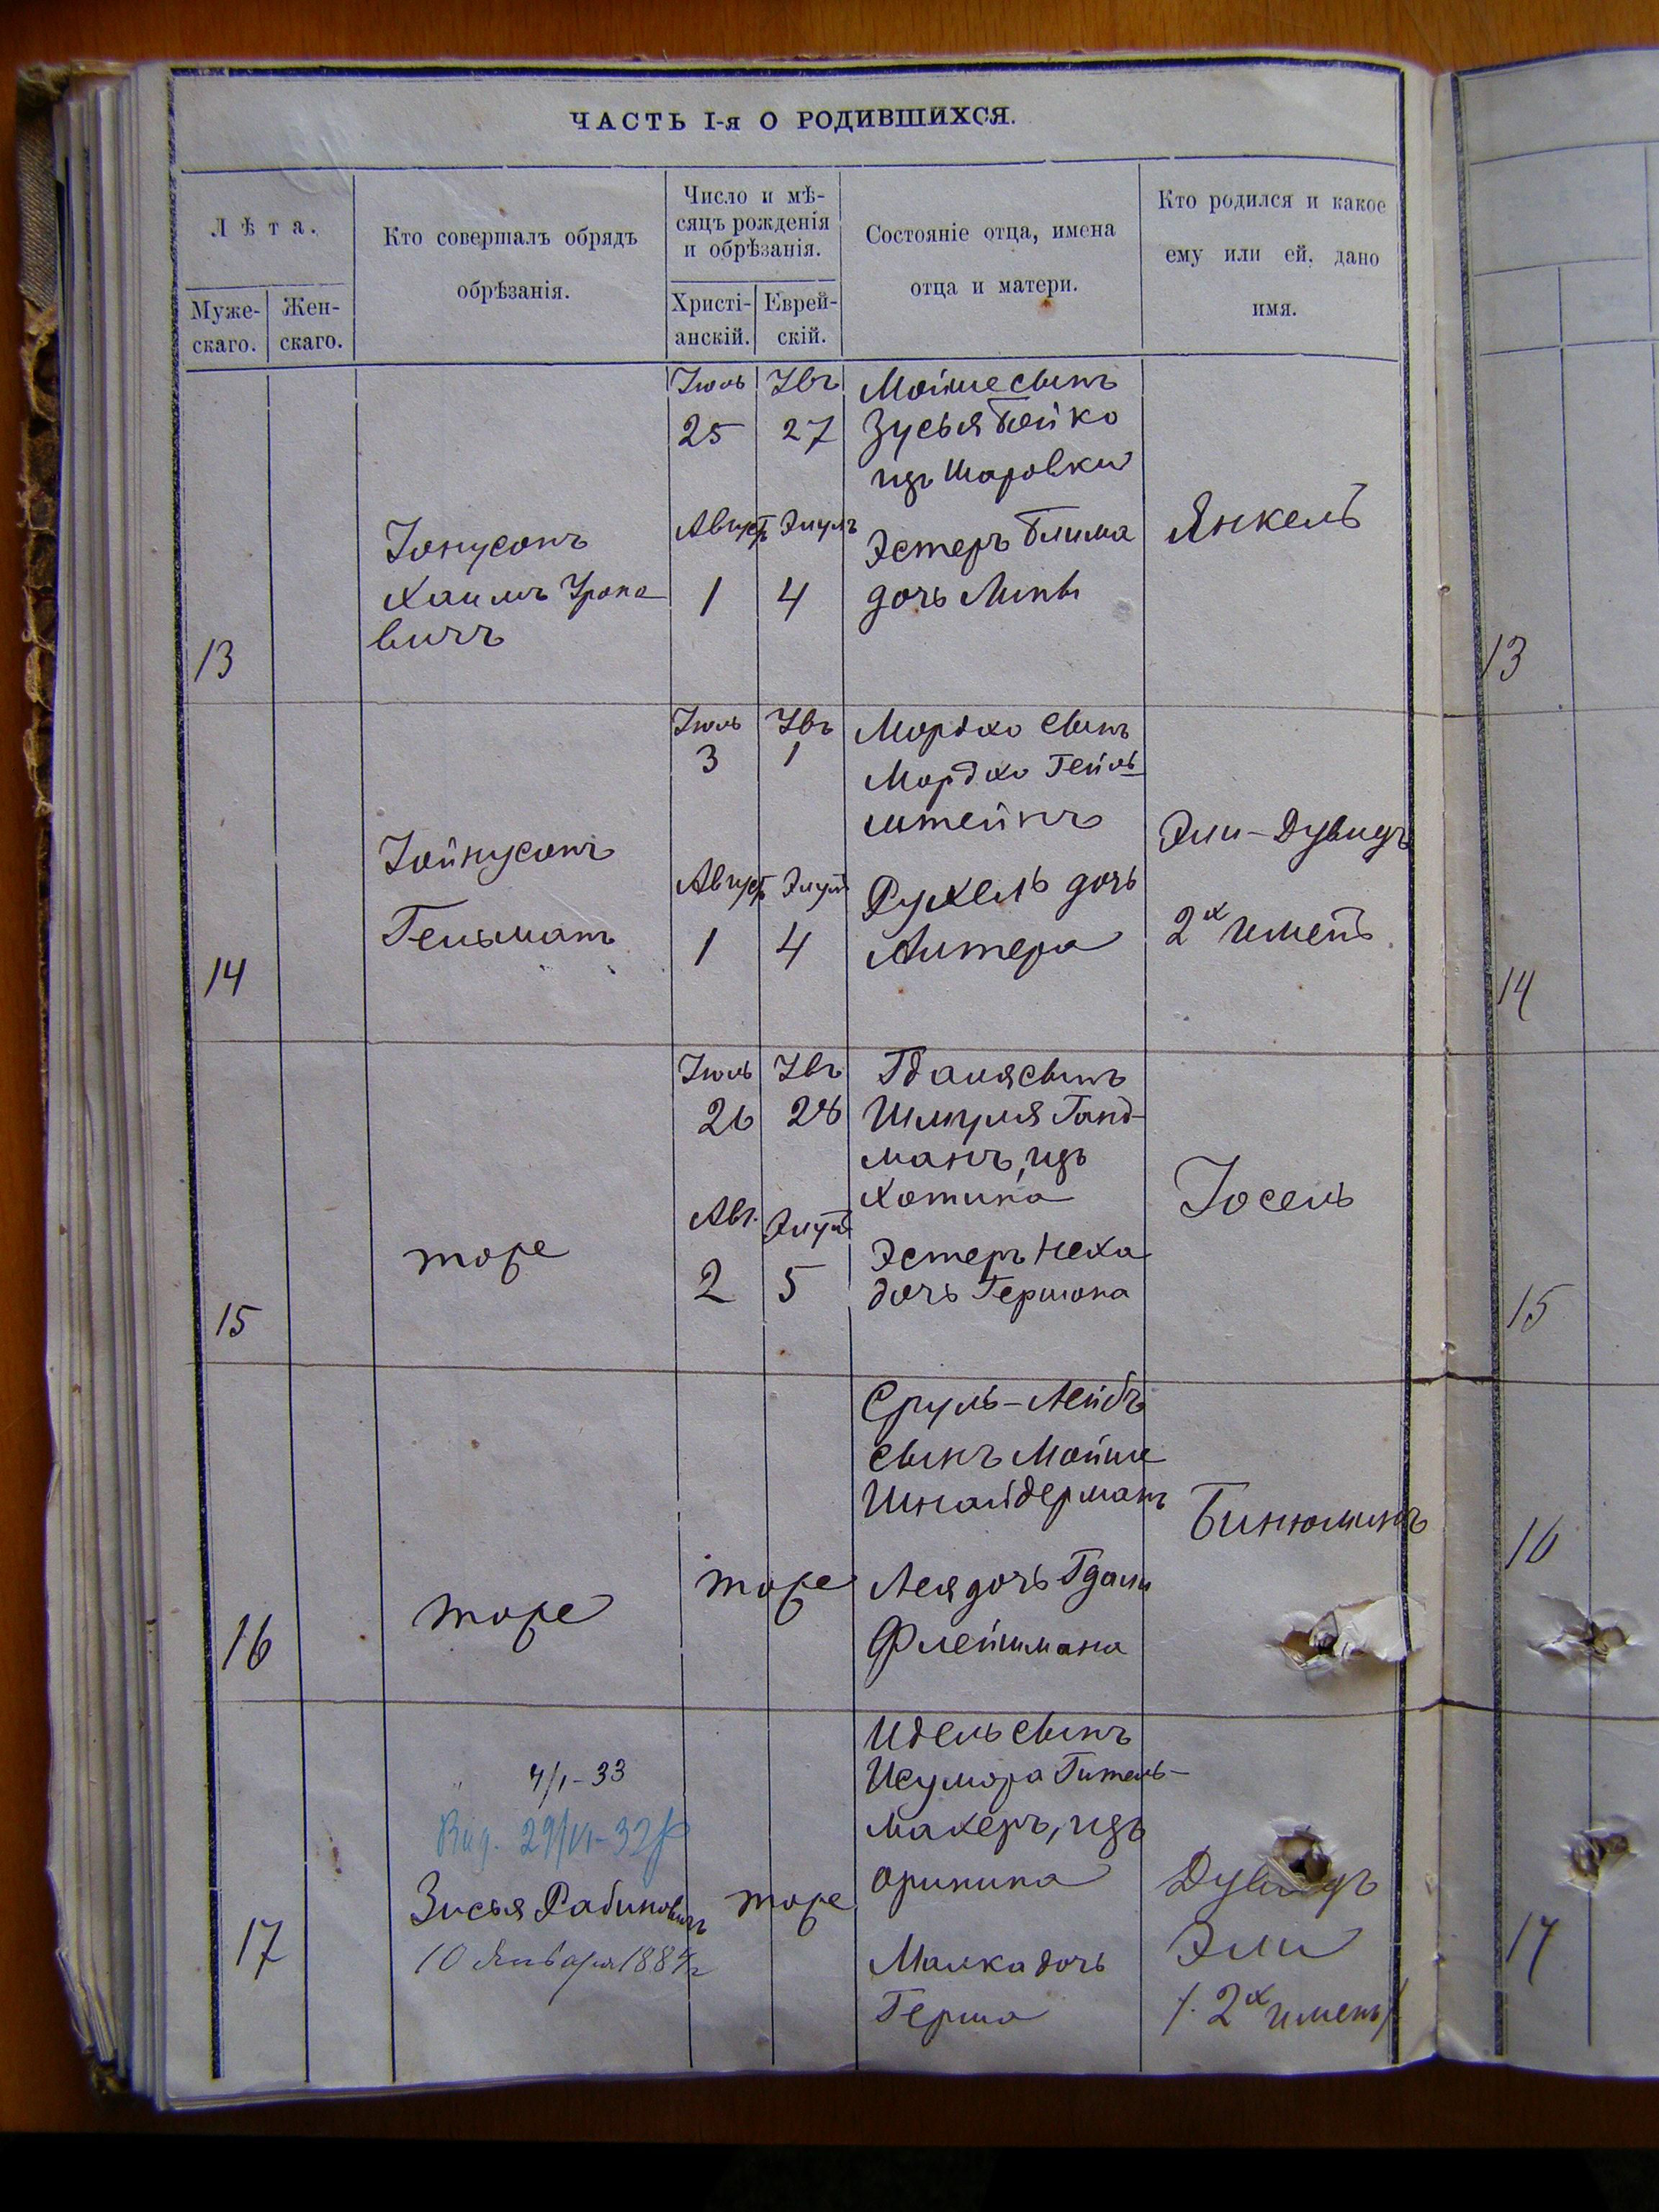 ЧАСТЬ I-я О РОДИВШИХСЯ.
Лѣта.
Муже-
скаго.
Жен-
скаго.
Кто совершалъ обрядъ
обрѣзанія.
Число и мѣ-
сяцъ рожденія
и обрѣзанія.
Христі-
анскій.
Еврей-
скій.
Состояніе отца, имена
отца и матери.
Кто родился и какое
ему или ей, дано
имя.
13
Іонусонъ
Хаимъ
вичъ
Іюль Івъ
25 27
Август Элулъ
1 4
Мойше сынъ
Зусья Бойко
изъ Шаровки
Эстеръ Блима
дочь
Янкель
13
14
Іойнусонъ
Гельманъ
Іюль Івъ
3 1
Август Элулъ
1 4
Мордко сынъ
Мордко Гейль
штейнъ
Рухель дочь
Алтера
Эли-Дувидъ
2х именъ.
14
15
тоже
Іюль Івъ
26 28
Авг. Элулъ
2 5
Гдаля сынъ
Шмуля Ганд-
манъ, изъ
Хотина
Эстеръ Неха
дочь Гершона
Іосель
15
16
тоже
тоже
Сруль-Лейбъ
сынъ Мойше
Шнайдерманъ
Лея дочь Гдали
Флейшмана
Бинюминъ
16
17
4/I-33
29/VI-32
Зисья Рабиновичъ
10 Января 188
тоже
Идель сынъ
Гитель-
махеръ, изъ
Оринина
Малка дочь
Герша
Дувидъ
Эли
/. 2х именъ/
17